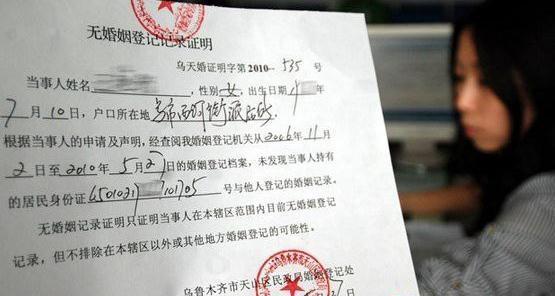 无婚姻登记记录证明
乌天婚证明字第2010--535 号
当事人姓名 ，性别 女，出生日期 年
7 月 10 日，户口所在地
根据当事人的申请及声明，经查阅我婚姻登记机关从 2006 年 11 月
2 日至 2010 年 5 月 27 日的婚姻登记档案，未发现当事人持有
的居民身份证 6501021 101705 号与他人登记的婚姻记录。
无婚姻记录证明只证明当事人在本辖区范围内目前无婚姻登记
记录，但不排除在本辖区以外或其他地方婚姻登记的可能性。
乌鲁木齐市天山区民政局婚姻登记处
日